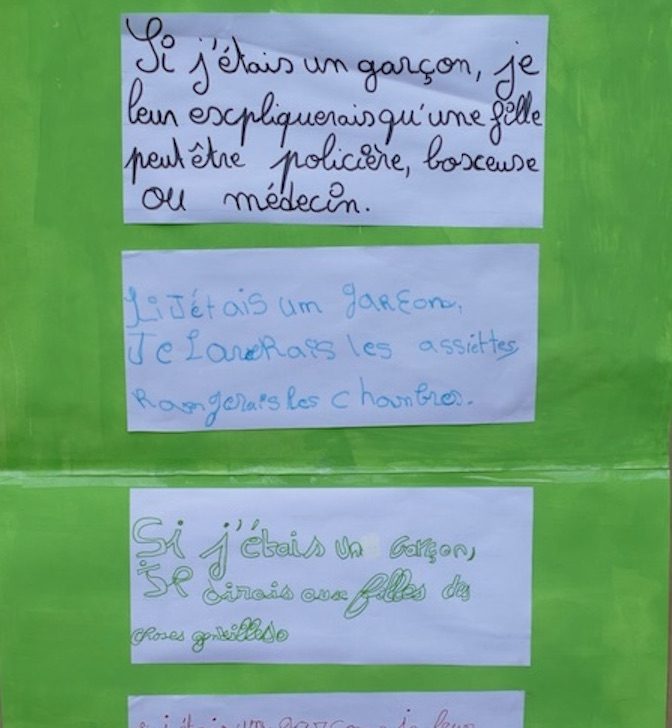 Si j'étais un garçon, je
leur escpliquerais qu'une fille
peut être policière, boxceuse
ou médecin.
Si J'étais um garcon.
Je Laverais les assiettes
Rangerais les chambres.
Si j'étais un Garçon,
je dirais aux filles des
choses gentilles.
Si j'étais un garçon je leur